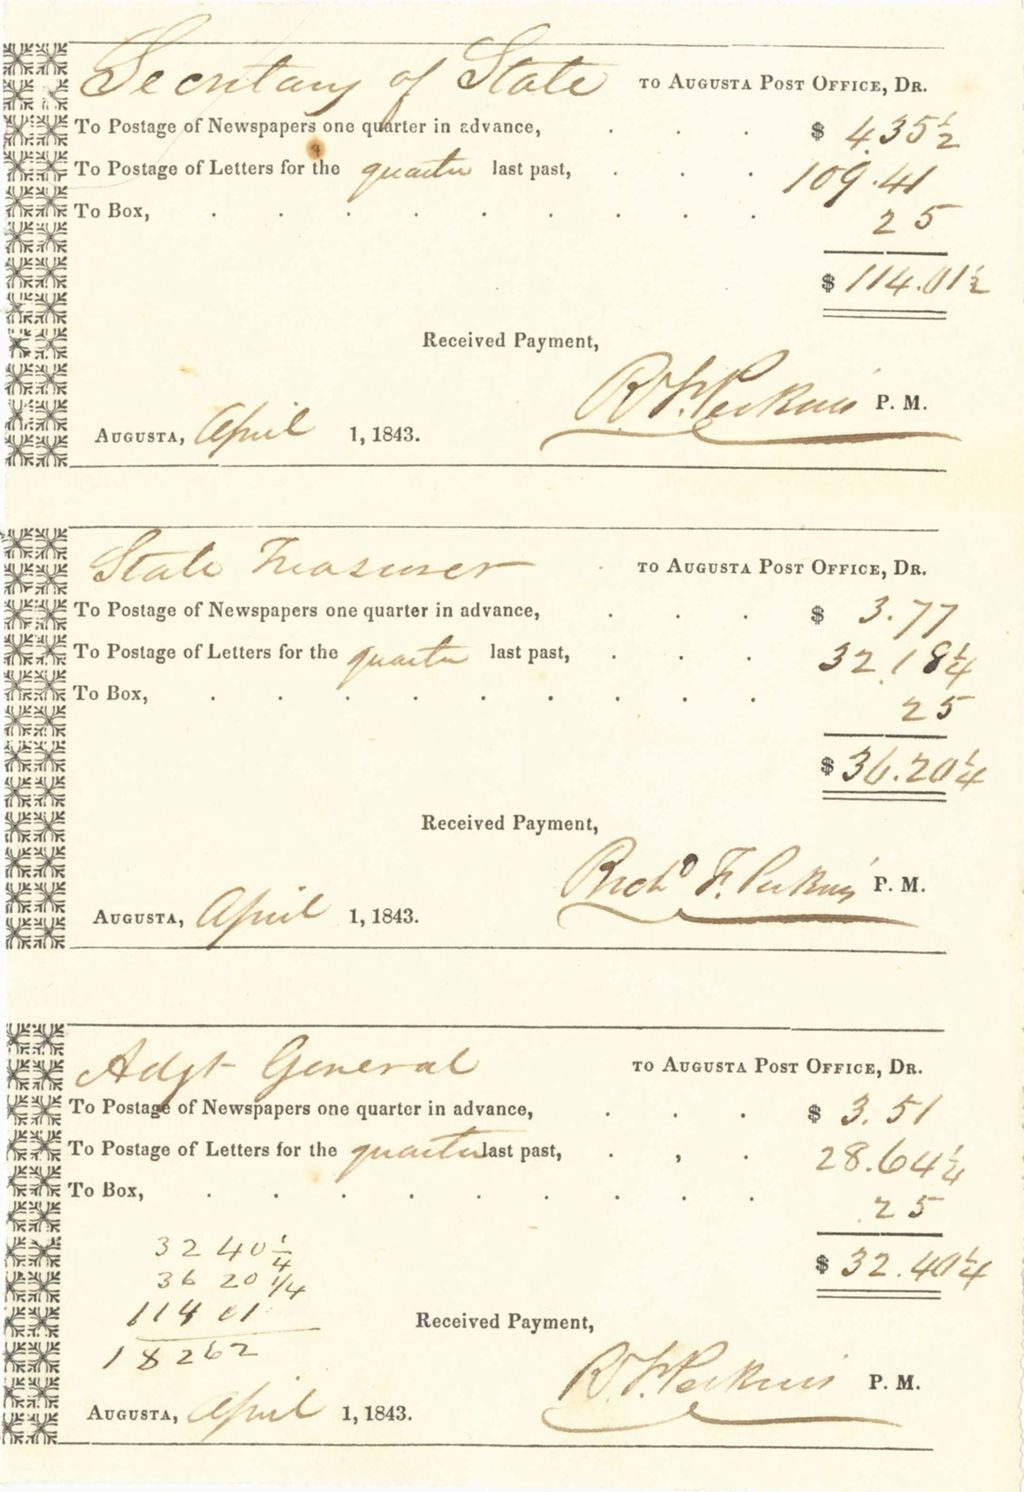 Secretary of State TO AUGUSTA POST OFFICE, DR.
To Postage of Newspapers one quarter in advance, . . . $ 4.35½
To Postage of Letters for the quarter last past, . . . 109.41
To Box, . . . . . . . . . 25
$ 114.01½
Received Payment,
R. F. Perkins P. M.
AUGUSTA, April 1, 1843.
State Treasurer TO AUGUSTA POST OFFICE, DR.
To Postage of Newspapers one quarter in advance, . . . $ 3.77
To Postage of Letters for the quarter last past, . . . 32.18¼
To Box, . . . . . . . . . 25
$ 36.20¼
Received Payment,
Richd F. Perkins P. M.
AUGUSTA, April 1, 1843.
Adjt General TO AUGUSTA POST OFFICE, DR.
To Postage of Newspapers one quarter in advance, . . . $ 3.51
To Postage of Letters for the quarter last past, . , . 28.64¼
To Box, . . . . . . . . . 25
$ 32.40¼
32 40¼
36 20 1/4
114 01
182 62
Received Payment,
R. F. Perkins P. M.
AUGUSTA, April 1, 1843.